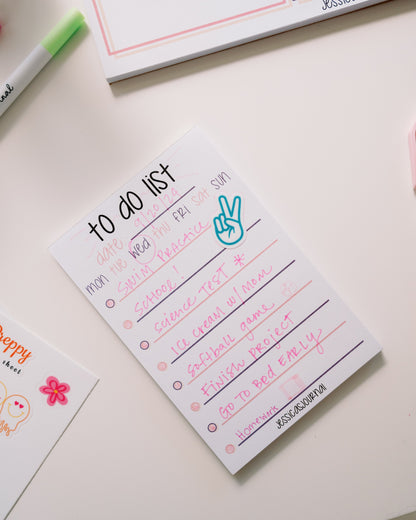 jessicasjournal
nal
to do list
date
mon tue wed thu FRI sat sun
SWIM PRACTICE
SCHOOL!
SCIENCE TEST *
ICE CREAM W/ MOM
Softball game
FINISH PROJECT
GO TO BED EARLY
Homework
jessicasjournal
Preppy
sheet